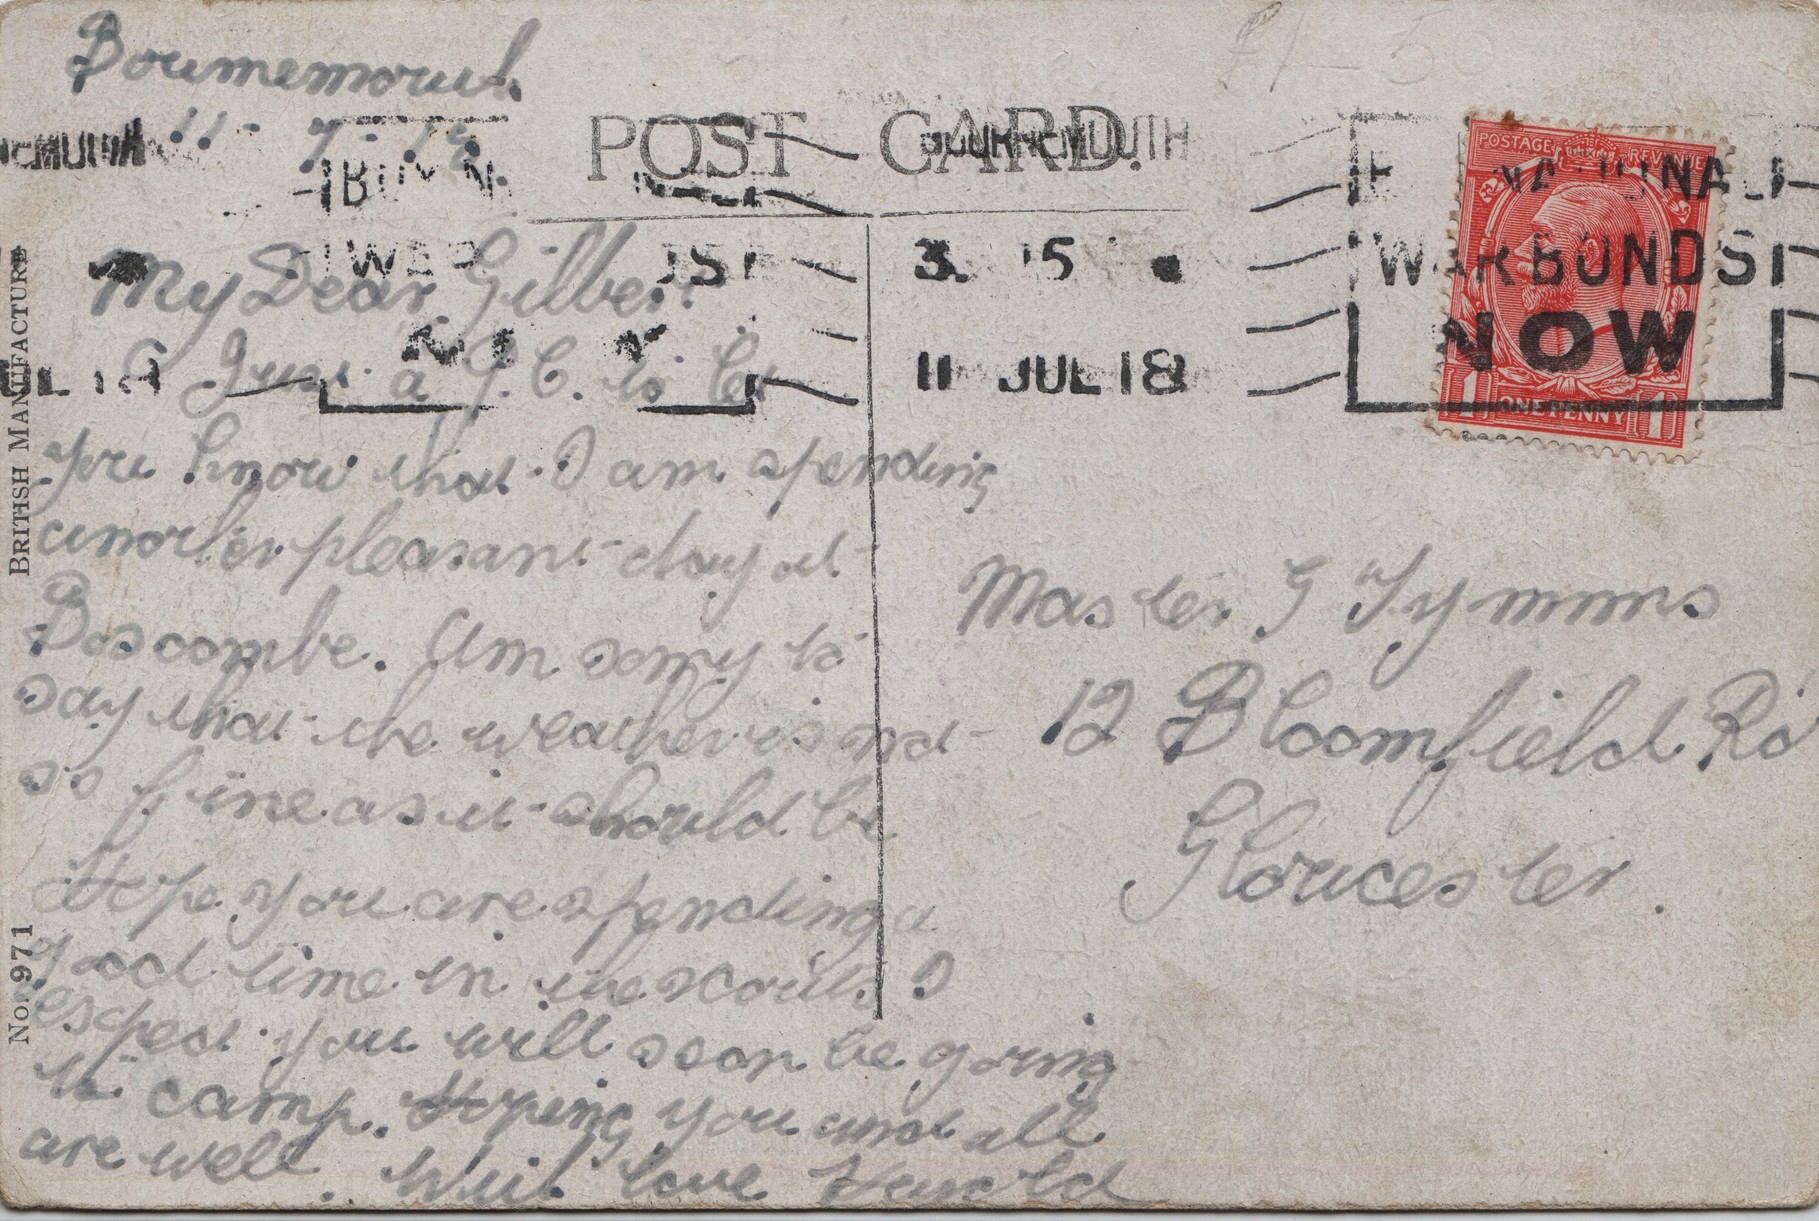 £1-50
Bournemouth
11-7-18
POST CARD.
BOURNEMOUTH
3. 15
11 JUL 18
NATIONAL
WAR BONDS
NOW
POSTAGE REVENUE
1 ONE PENNY 1
BUY N
JL 18
BRITISH MANUFACTURE
No. 971
My Dear Gilbert
Just a P.C. to let
you know that I am spending
another pleasant day at
Boscombe. Am sorry to
say that the weather is not
so fine as it should be
Hope you are spending a
good time in the scouts. I
expect you will soon be going
to camp. Hoping you and all
are well. With love Harold
Master G Tymms
12 Bloomfield Rd
Gloucester.